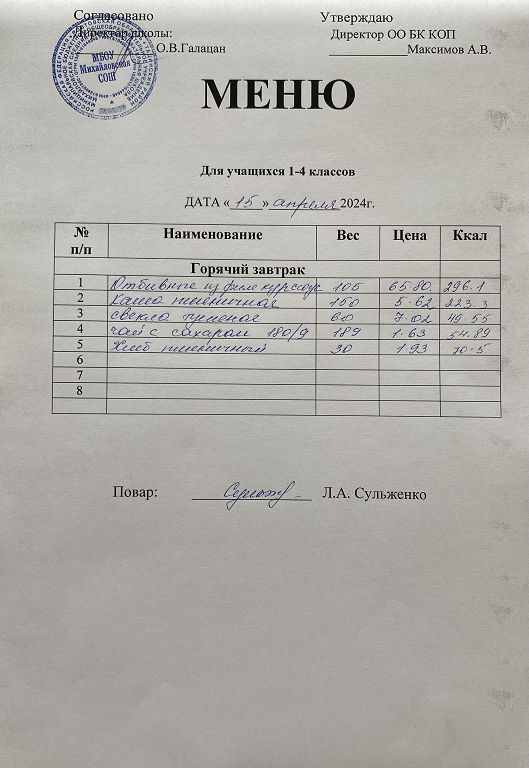 Согласовано Утверждаю
Директор школы: Директор ОО БК КОП
О.В.Галацан Максимов А.В.
МБОУ
Михайловская
СОШ
МЕНЮ
Для учащихся 1-4 классов
ДАТА «15» апреля 2024г.
№ п/п Наименование Вес Цена Ккал
Горячий завтрак
1 Отбивные из филе кур соус 105 65.80 296.1
2 каша пшеничная 150 5.62 223.3
3 свекла тушеная 60 7.02 45.55
4 чай с сахаром 180/9 189 1.63 54.89
5 Хлеб пшеничный 30 1.93 70.5
6
7
8
Повар: Л.А. Сульженко